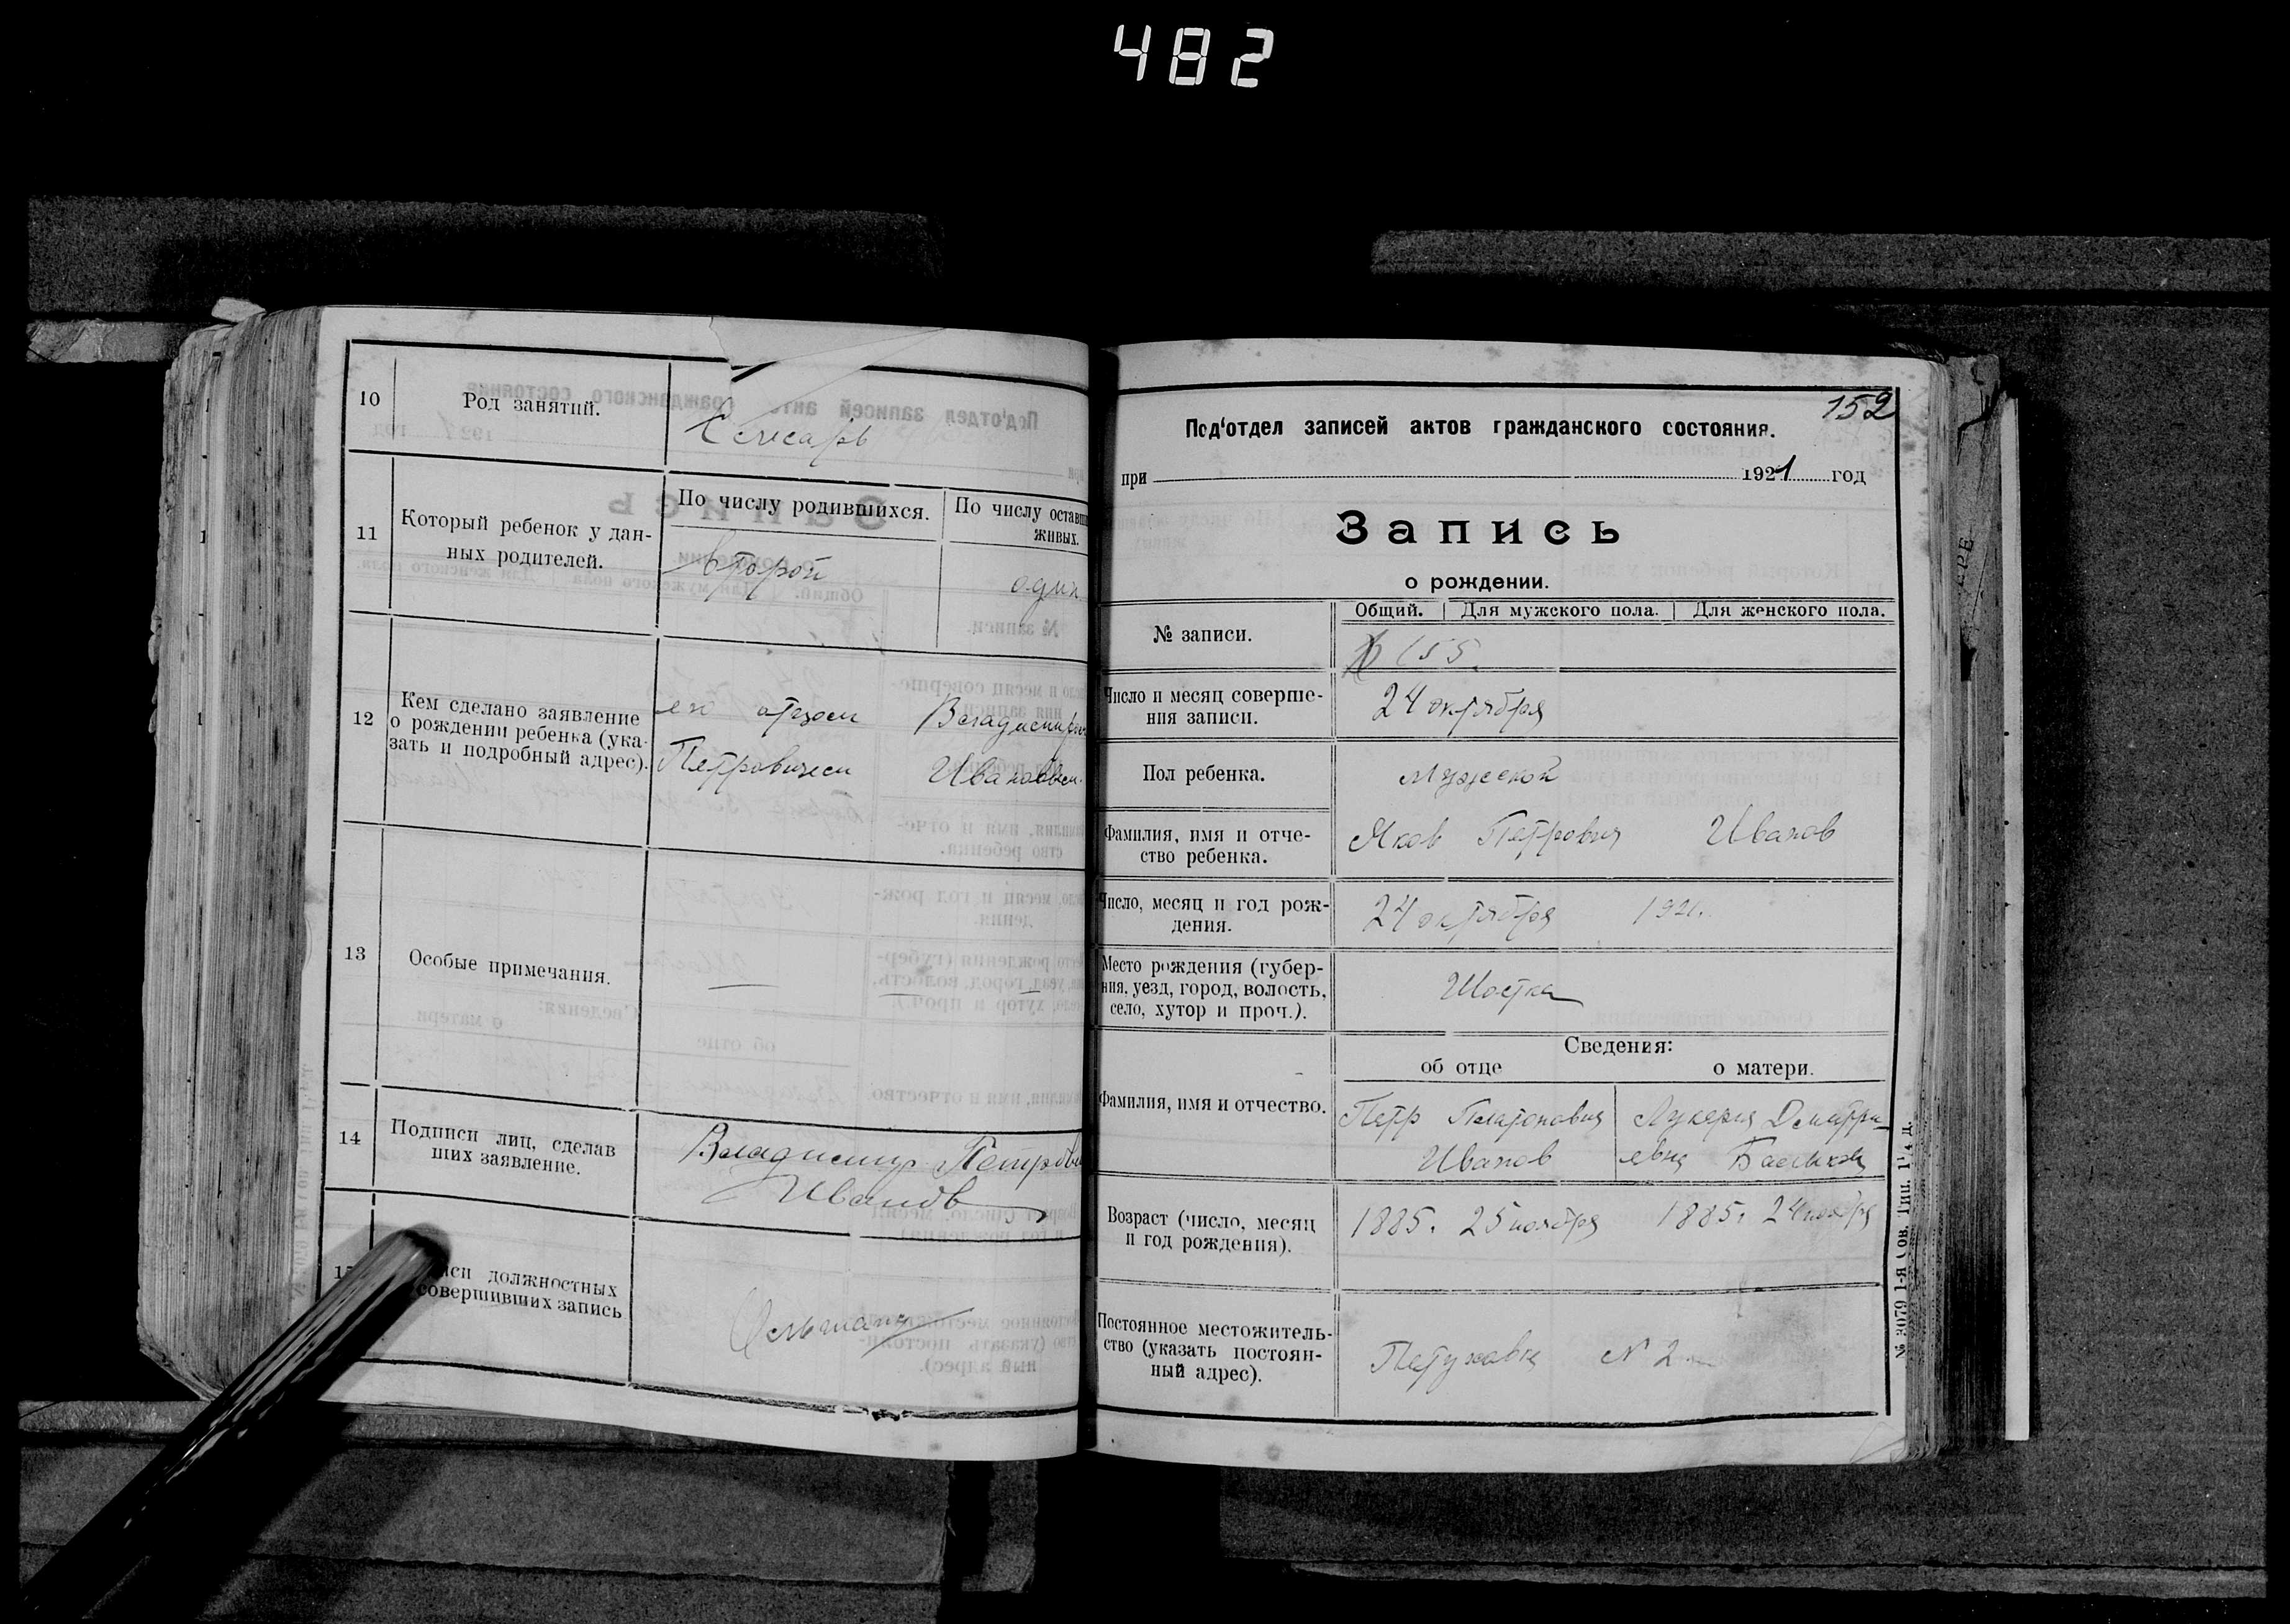 482
10
Род занятий.
Слесарь
11
Который ребенок у дан-
ных родителей.
По числу родившихся.
второй
По числу оставш
живых.
один
12
Кем сделано заявление
о рождении ребенка (ука-
зать и подробный адрес).
его отцом Владимиром
Петровичем Ивановым
13
Особые примечания.
14
Подписи лиц, сделав
ших заявление.
Владимир Петрови
Иванов
должностных
совершивших запись
152
Под'отдел записей актов гражданского состояния.
при 1921 год
Запись
о рождении.
№ записи.
Общий. Для мужского пола. Для женского пола.
155.
Число и месяц соверше-
ния записи.
24 октября
Пол ребенка.
Мужской
Фамилия, имя и отче-
ство ребенка.
Яков Петрович Иванов
Число, месяц и год рож-
дения.
24 октября 1921.
Место рождения (губер-
ния, уезд, город, волость,
село, хутор и проч.).
Шостка
Сведения:
об отце о матери.
Фамилия, имя и отчество.
Петр Платонович
Иванов
Лукерия Дмитри-
евна
Возраст (число, месяц
и год рождения).
1885. 25 ноября 1885. 24 ноября
Постоянное местожитель-
ство (указать постоян-
ный адрес).
№ 2
№ 3079 1-я Сов. Тип.